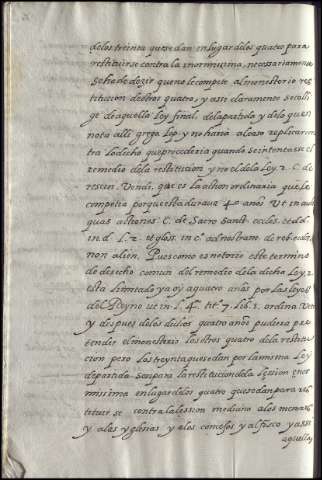 delos treinta que se dan en lugar delos quatro para
restituirse contra la inormissima, necessariamente
se ha de dezir que no le compete al monesterio res
titucion de otros quatro, y assi claramente se colli
ge de aquella ley final. dela partida y delo que
nota alli grego. Lop. y no haria al caso replicar con
tra lo dicho que procederia quando se intentasse el
remedio dela restitucion y no el dela ley. 2. C. de
rescin. vendi. que es la action ordinaria que le
competia porque esta dura va 40 años. ut in auth.
quas actiones. C. de Sacro sanct. eccles.
in d. L. 2. et gloss. in c. ad nostram. de reb. eccles.
non alien. Pues como es notorio este termino
de derecho comun del remedio dela dicha ley. 2.
esta limitado ya oy a quatro años por las leyes
del Reyno ut in L. 4. tit. 7. Lib. 5. ordina.
y despues delos dichos quatro años pudiera pre
tender el monesterio los otros quatro dela restitu
cion pero los treynta que se dan por la misma Ley
de partida son para la restitucion dela lession inor
missima en lugar delos quatro que se dan para res
tituir se contra la lession mediana a los menores
y a las yglesias y a los concejos y al fisco y assi
aquellos